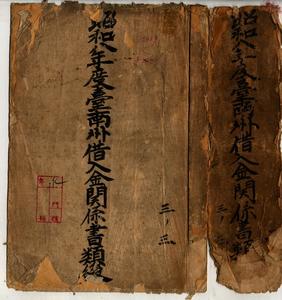 昭和八年度臺南州借入金関係書類綴
三ノ三
昭和八年度臺南州借入金関係書類
三ノ三